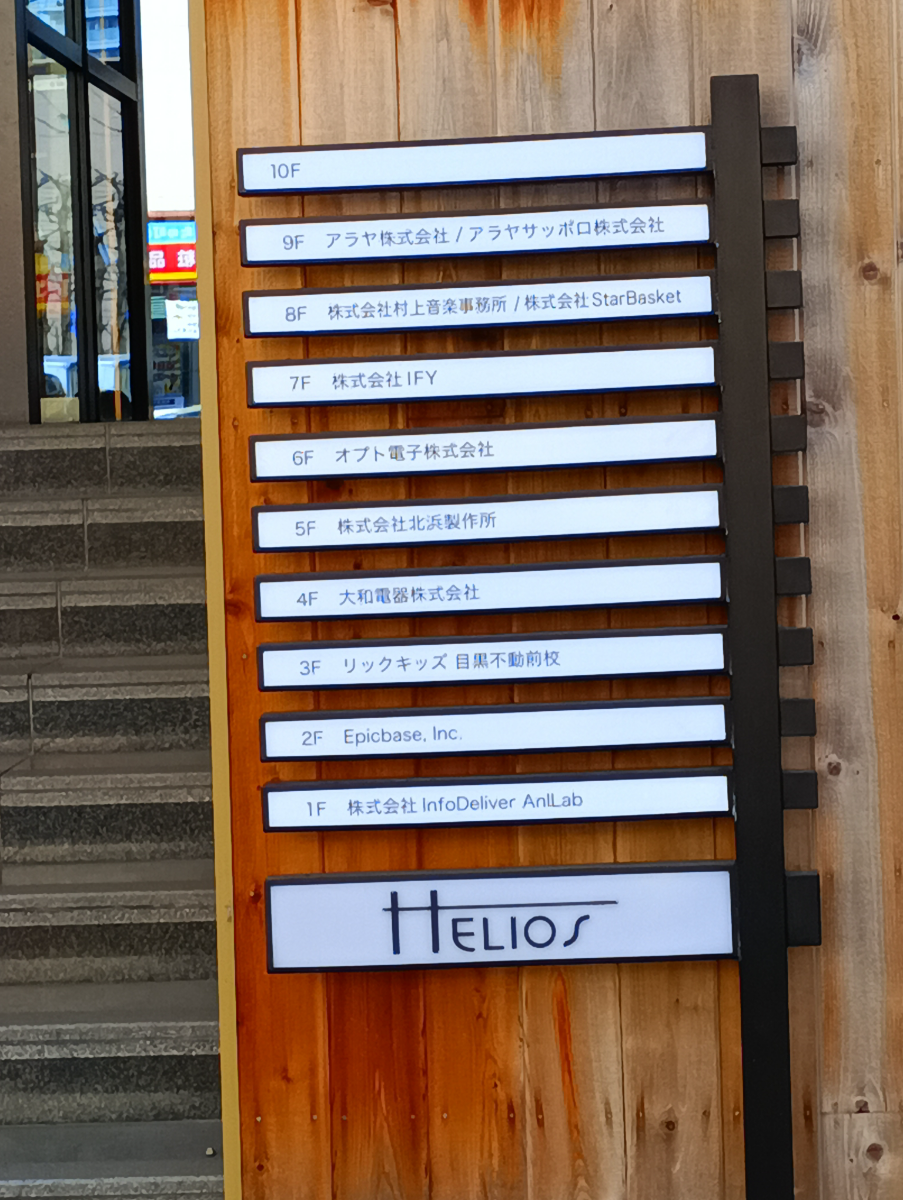 10F
9F アラヤ株式会社 / アラヤサッポロ株式会社
8F 株式会社村上音楽事務所 / 株式会社StarBasket
7F 株式会社IFY
6F オプト電子株式会社
5F 株式会社北浜製作所
4F 大和電器株式会社
3F リックキッズ 目黒不動前校
2F Epicbase, Inc.
1F 株式会社InfoDeliver AnlLab
HELIOS